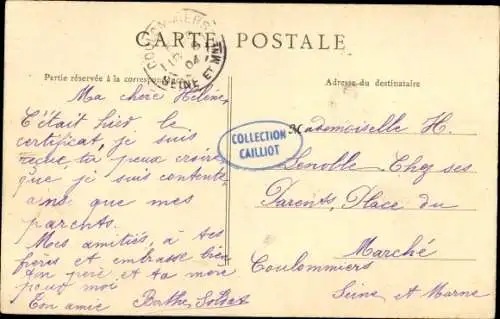 CARTE POSTALE
COULOMMIERS
SEINE ET MNE
Partie réservée à la correspondance
Adresse du destinataire
Ma chère Hélène,
C'était hier le
certificat, je suis
reçue tu peux croire
que je suis contente
ainsi que mes
parents.
Mes amitiés, à tes
frères et embrasse bien
ton père et ta mère
pour moi
Ton amie Berthe
COLLECTION
CAILLIOT
Mademoiselle H.
Lenoble Chez ses
Parents, Place du
Marché
Coulommiers
Seine et Marne